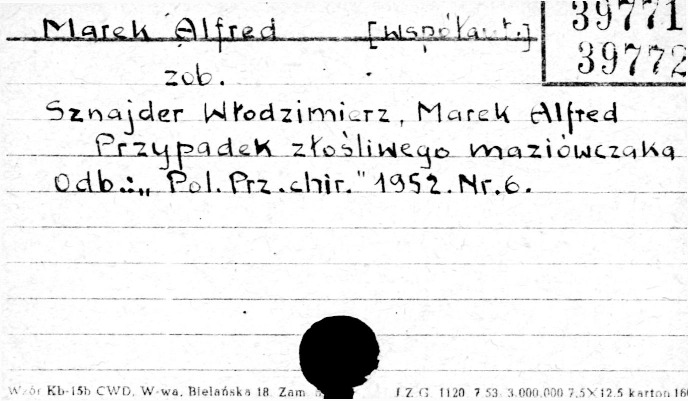 Marek Alfred [współaut.]
39771
39772
zob.
Sznajder Włodzimierz, Marek Alfred
Przypadek złośliwego maziówczaka
Odb.: „Pol. Prz. chir." 1952. Nr. 6.
Wzór Kb-15b CWD, W-wa, Bielańska 18. Zam. J.Z.G. 1120 7.53. 3.000.000 7,5×12,5 karton 160